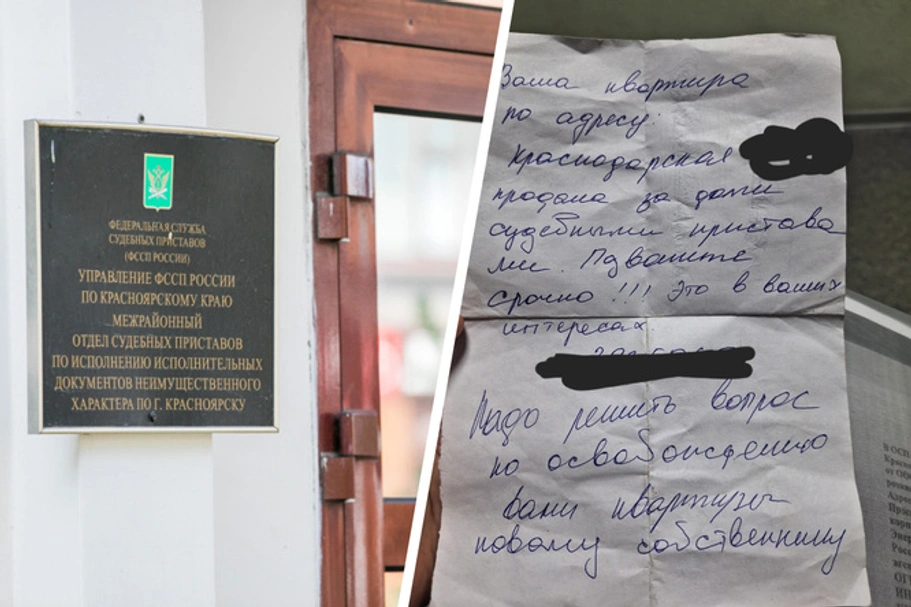 ФЕДЕРАЛЬНАЯ СЛУЖБА
СУДЕБНЫХ ПРИСТАВОВ
(ФССП РОССИИ)
УПРАВЛЕНИЕ ФССП РОССИИ
ПО КРАСНОЯРСКОМУ КРАЮ
МЕЖРАЙОННЫЙ
ОТДЕЛ СУДЕБНЫХ ПРИСТАВОВ
ПО ИСПОЛНЕНИЮ ИСПОЛНИТЕЛЬНЫХ
ДОКУМЕНТОВ НЕИМУЩЕСТВЕННОГО
ХАРАКТЕРА ПО Г. КРАСНОЯРСКУ
Ваша квартира
по адресу:
Краснодарская
продана за долги
судебными пристава
ми. Позвоните
срочно!!! Это в ваших
интересах
Надо решить вопрос
по освобождению
вами квартиры
новому собственнику